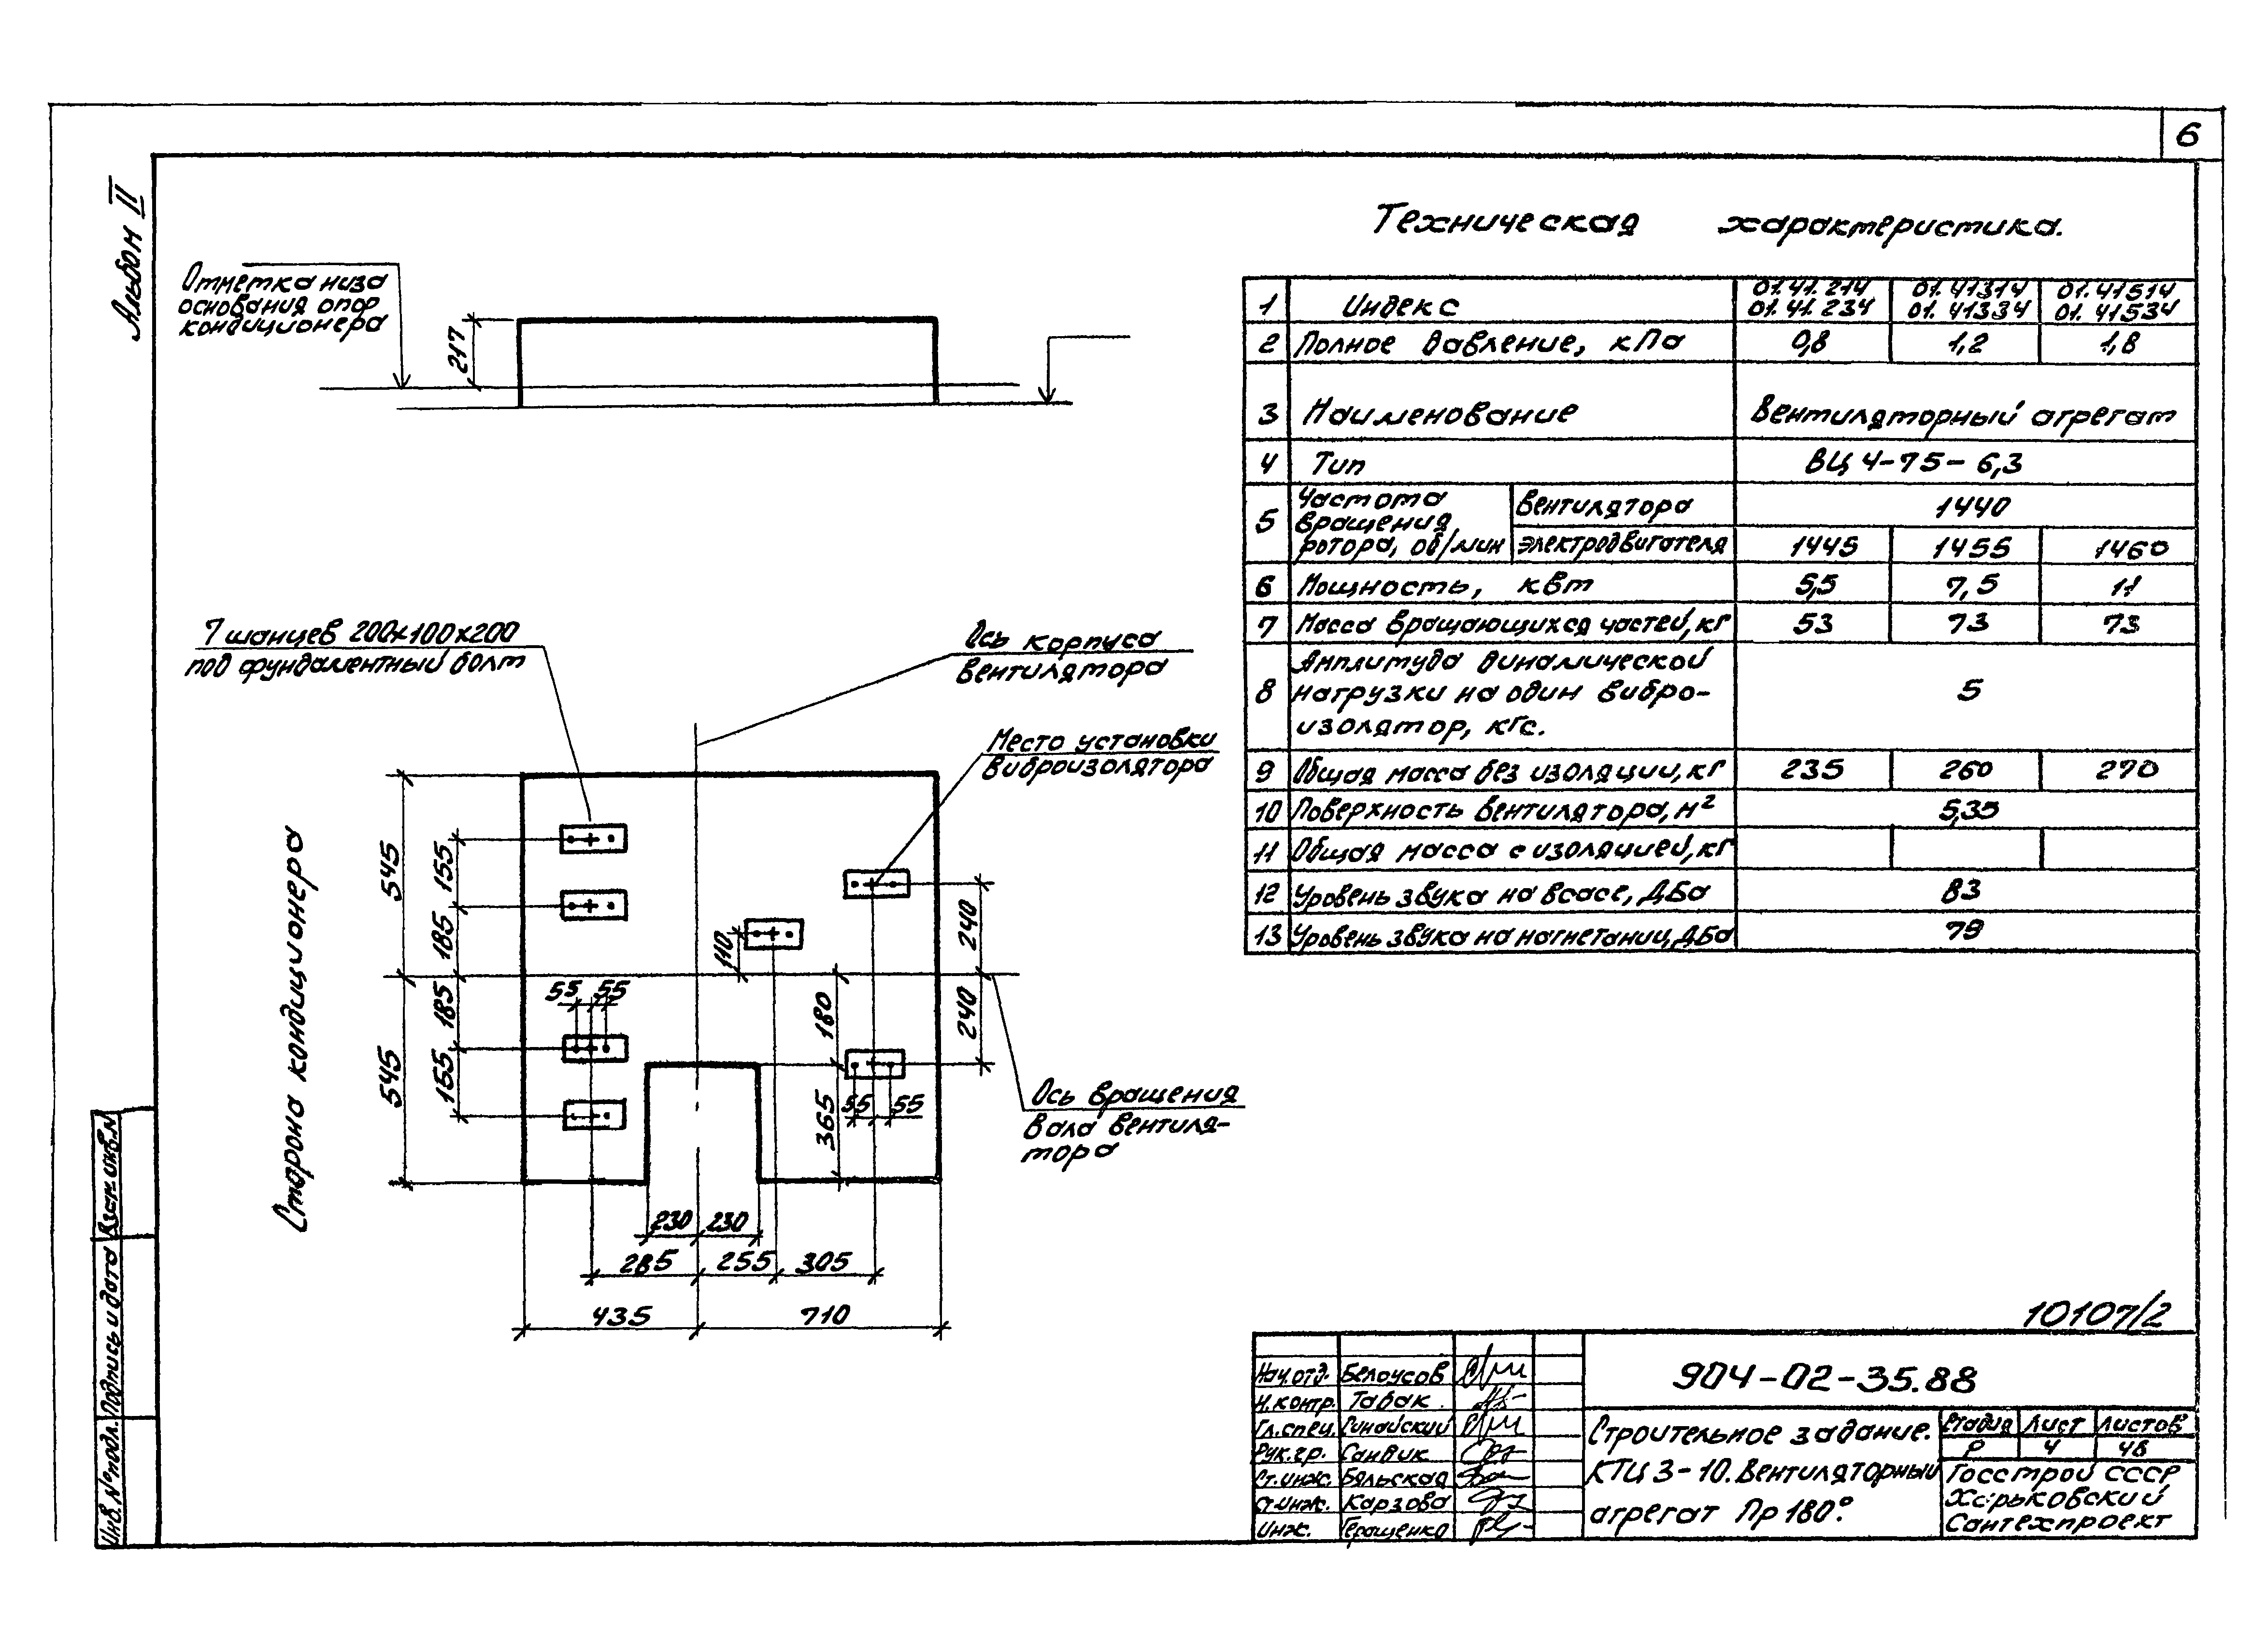 6
Альбом II
Отметка низа
основания опор
кондиционера
217
7 шанцев 200х100х200
под фундаментный болт
Ось корпуса
вентилятора
Место установки
виброизолятора
Сторона кондиционера
545
545
155
185
185
155
55
55
110
180
365
240
240
55
55
230
230
285
255
305
435
710
Ось вращения
вала вентиля-
тора
Техническая характеристика.
1 Индекс 01.41.214 01.41314 01.41514
01.41.234 01.41334 01.41534
2 Полное давление, кПа 0,8 1,2 1,8
3 Наименование Вентиляторный агрегат
4 Тип ВЦ 4-75-6,3
5 Частота вентилятора 1440
вращения
ротора, об/мин электродвигателя 1445 1455 1460
6 Мощность, квт 5,5 7,5 11
7 Масса вращающихся частей, кг 53 73 73
8 Амплитуда динамической
нагрузки на один вибро- 5
изолятор, кгс.
9 Общая масса без изоляции, кг 235 260 270
10 Поверхность вентилятора, м² 5,35
11 Общая масса с изоляцией, кг
12 Уровень звука на всасе, ДБа 83
13 Уровень звука на нагнетании, ДБа 79
10107/2
904-02-35.88
Нач.отд. Белоусов
Н.контр. Табак
Гл.спец. Синайский
Рук.гр. Санвик
Ст.инж. Бяльская
Ст.инж. Карзова
Инж. Геращенко
Строительное задание.
КТЦ 3-10. Вентиляторный
агрегат Пр 180°.
Стадия Лист Листов
Р 4 48
Госстрой СССР
Харьковский
Сантехпроект
Взам.инв.N
Подпись и дата
Инв.№подл.